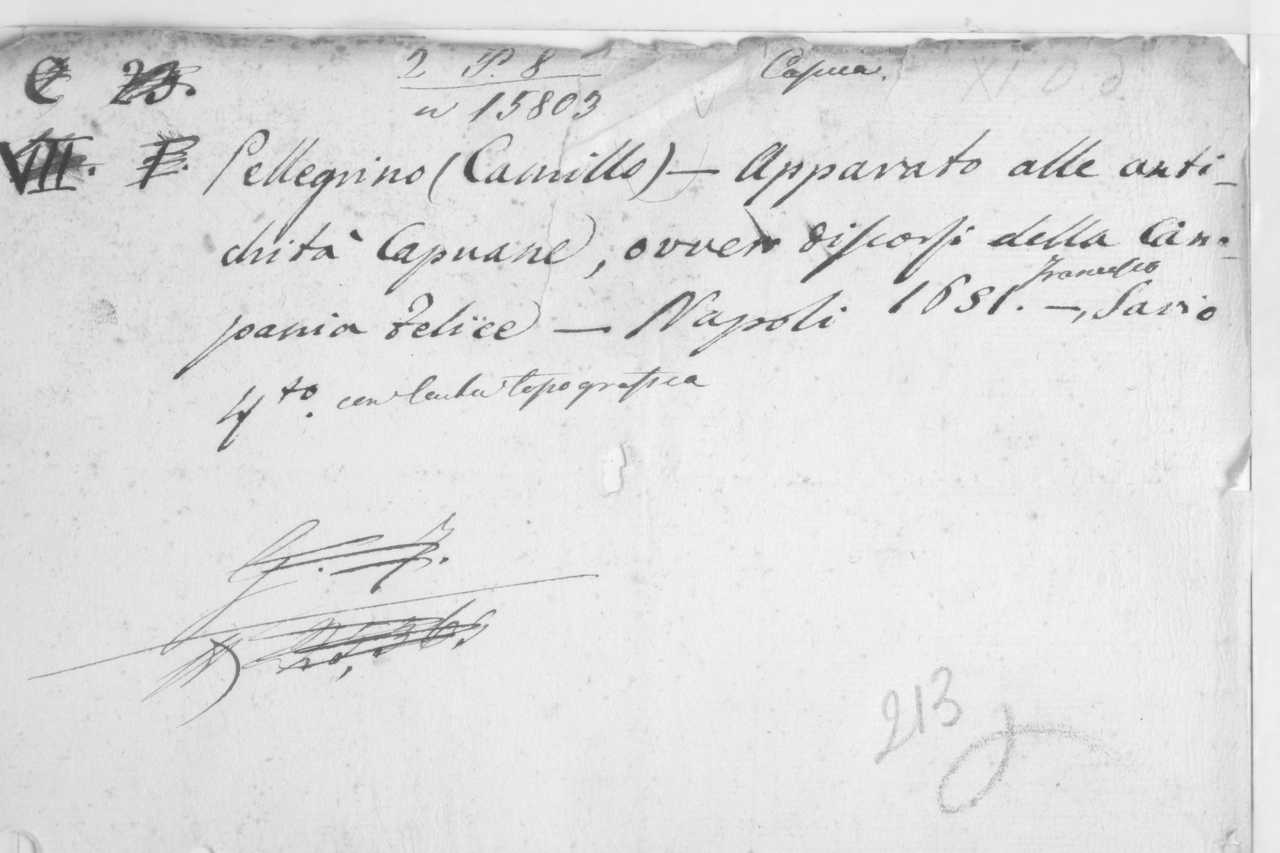 C 23. 2 P. 8 Capua.
n 15803
VIII. F. Pellegrino (Camillo) — Apparato alle anti-
chità Capuane, ovvero discorsi della Cam-
pania felice — Napoli 1651. —, Francesco Savio
4.to con tavola topografica
213